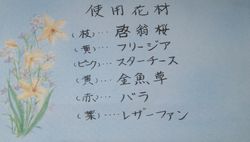 使用花材
(枝)…啓翁桜
(黄)…フリージア
(ピンク)…スターチース
(黄)…金魚草
(赤)…バラ
(葉)…レザーファン